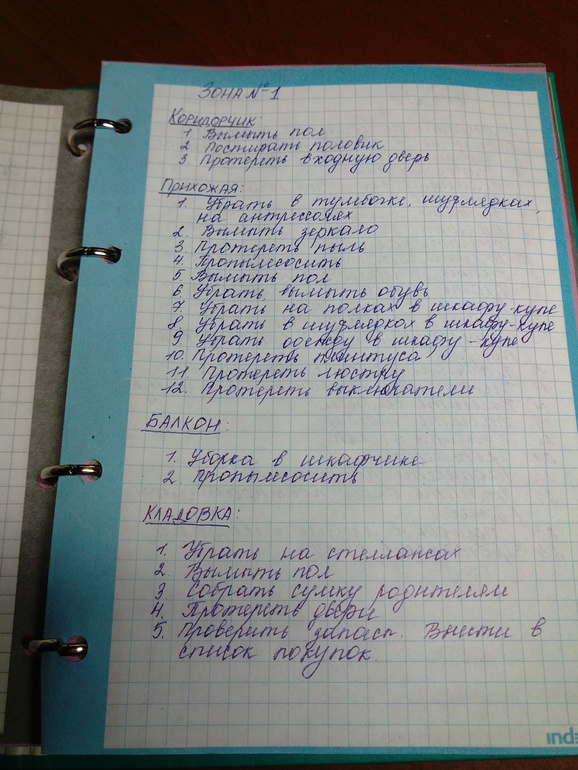 Зона №1
Коридорчик
1 Вымыть пол
2 Постирать половик
3 Протереть входную дверь
Прихожая:
1. Убрать в тумбочке, шуфлядках,
на антрессолях
2. Вымыть зеркало
3. Протереть пыль
4. Пропылесосить
5 Вымыть пол
6. Убрать, вымыть обувь
7 Убрать на полках в шкафу-купе
8 Убрать в шуфлядках в шкафу-купе
9 Убрать одежду в шкафу-купе
10. Протереть плинтуса
11 Протереть люстру
12. Протереть выключатели
БАЛКОН:
1. Уборка в шкафчике
2. Пропылесосить
КЛАДОВКА:
1. Убрать на стеллажах
2. Вымыть пол
3 Собрать сумку родителям
4. Протереть двери
5. Проверить запасы. Внести в
список покупок.
inde